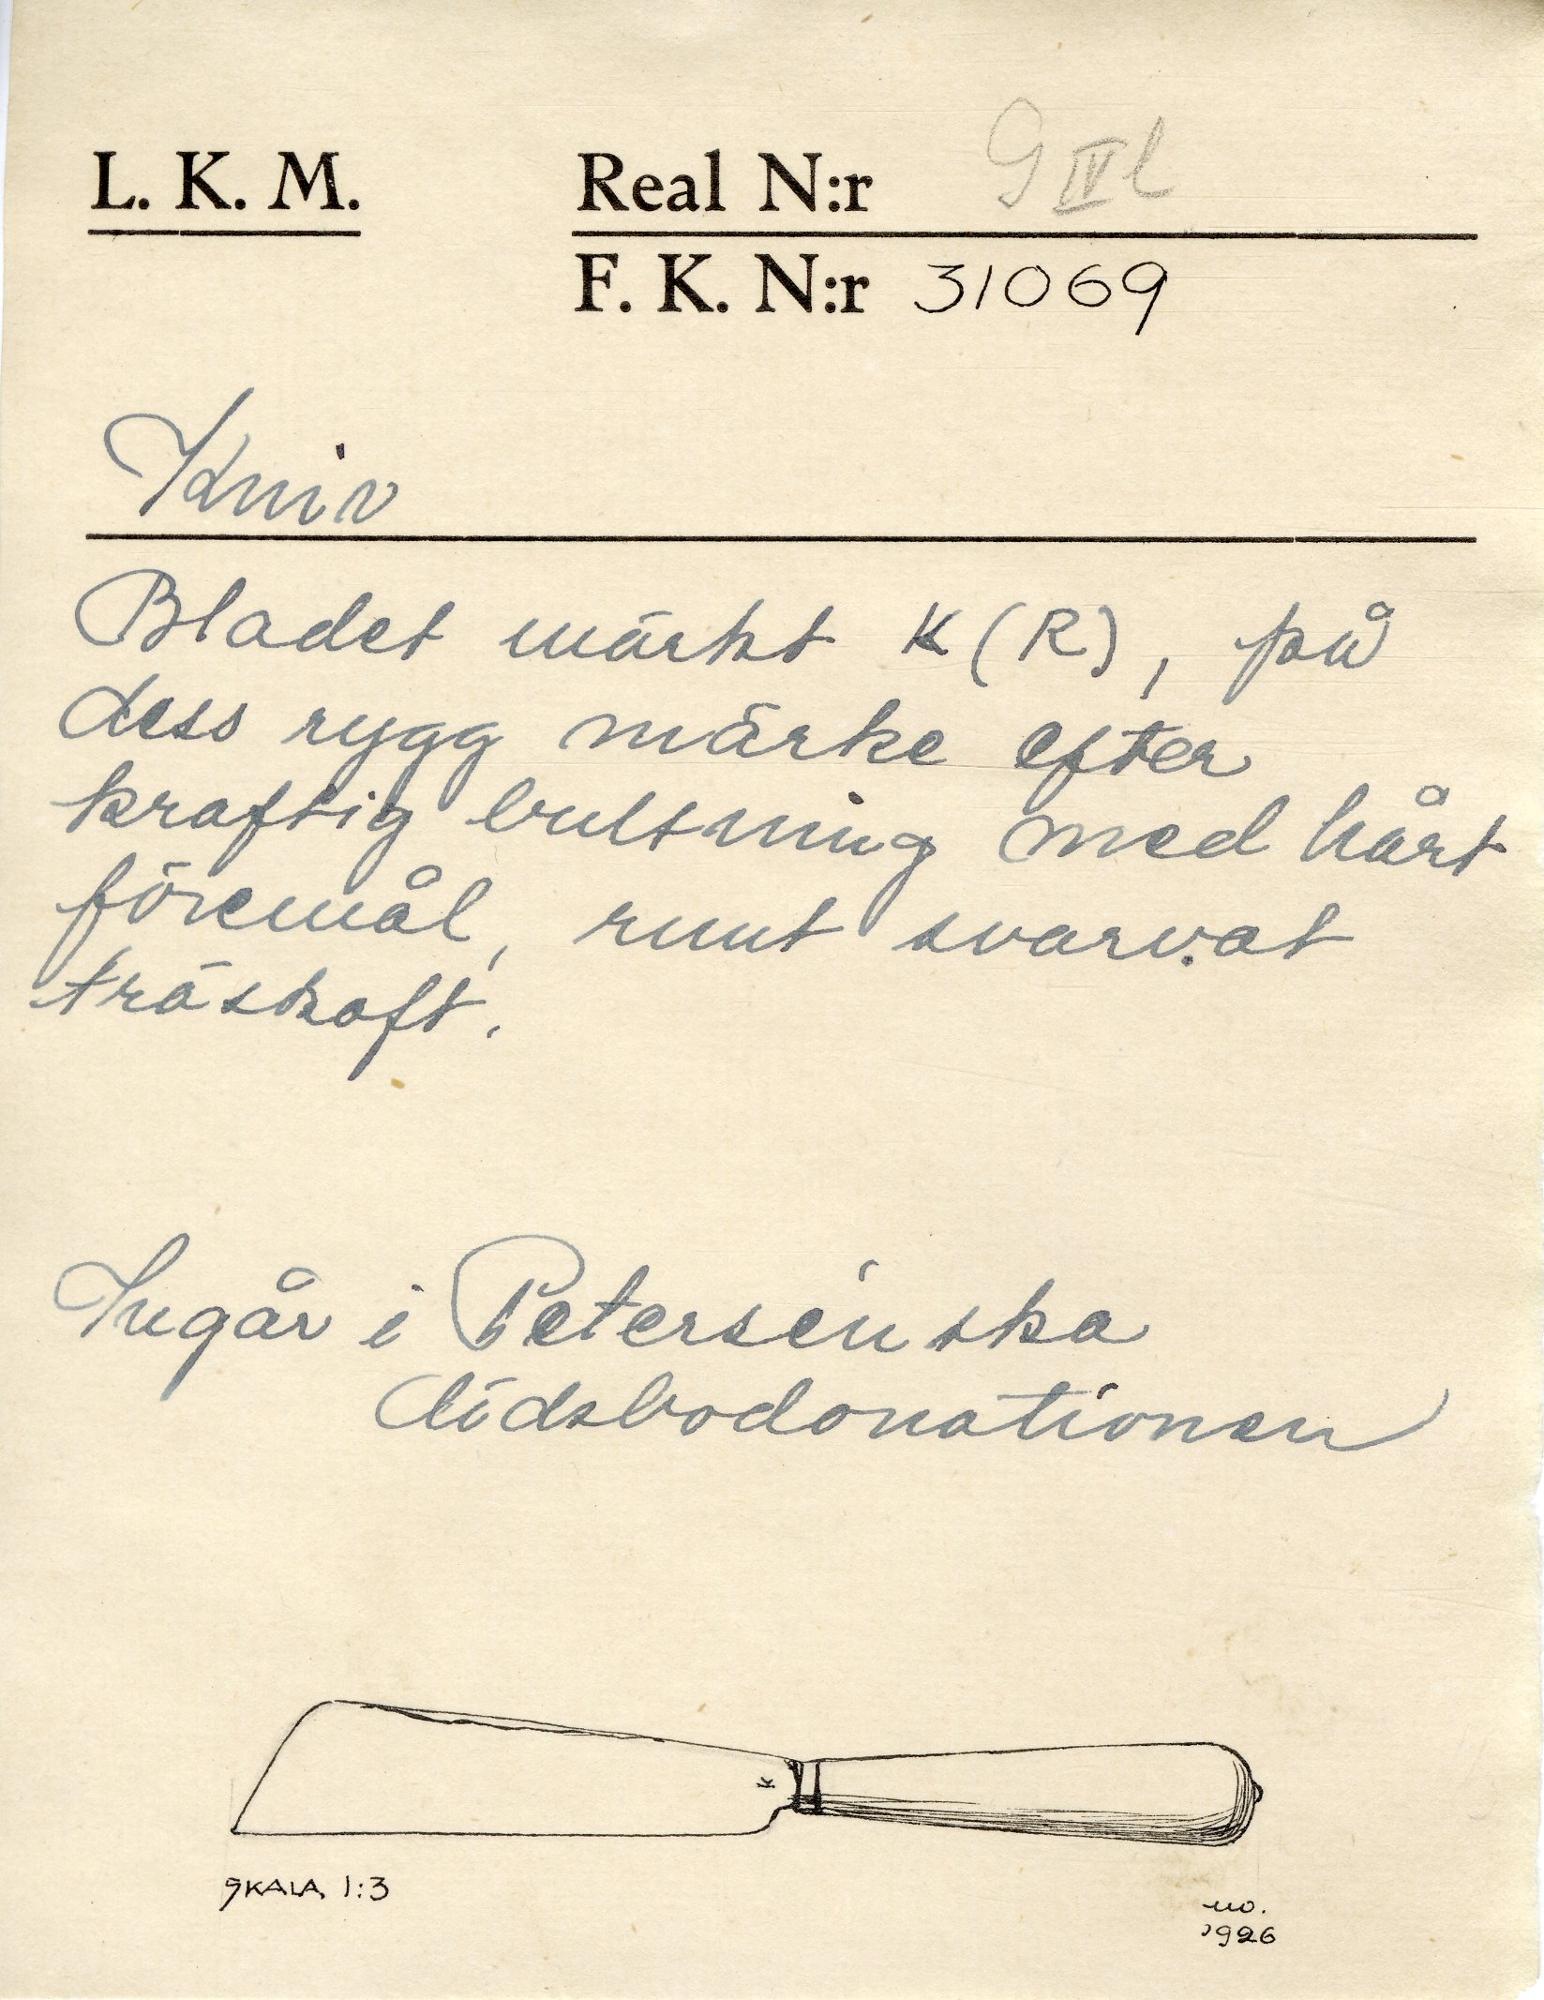 L. K. M.
Real N:r G IV l
F. K. N:r 31069
Kniv
Bladet märkt K (R), på
dess rygg märke efter
kraftig bultning med hårt
föremål, runt svarvat
träskaft.
Ingår i Petersénska
Lidsbodonationen
K
SKALA 1:3
1926